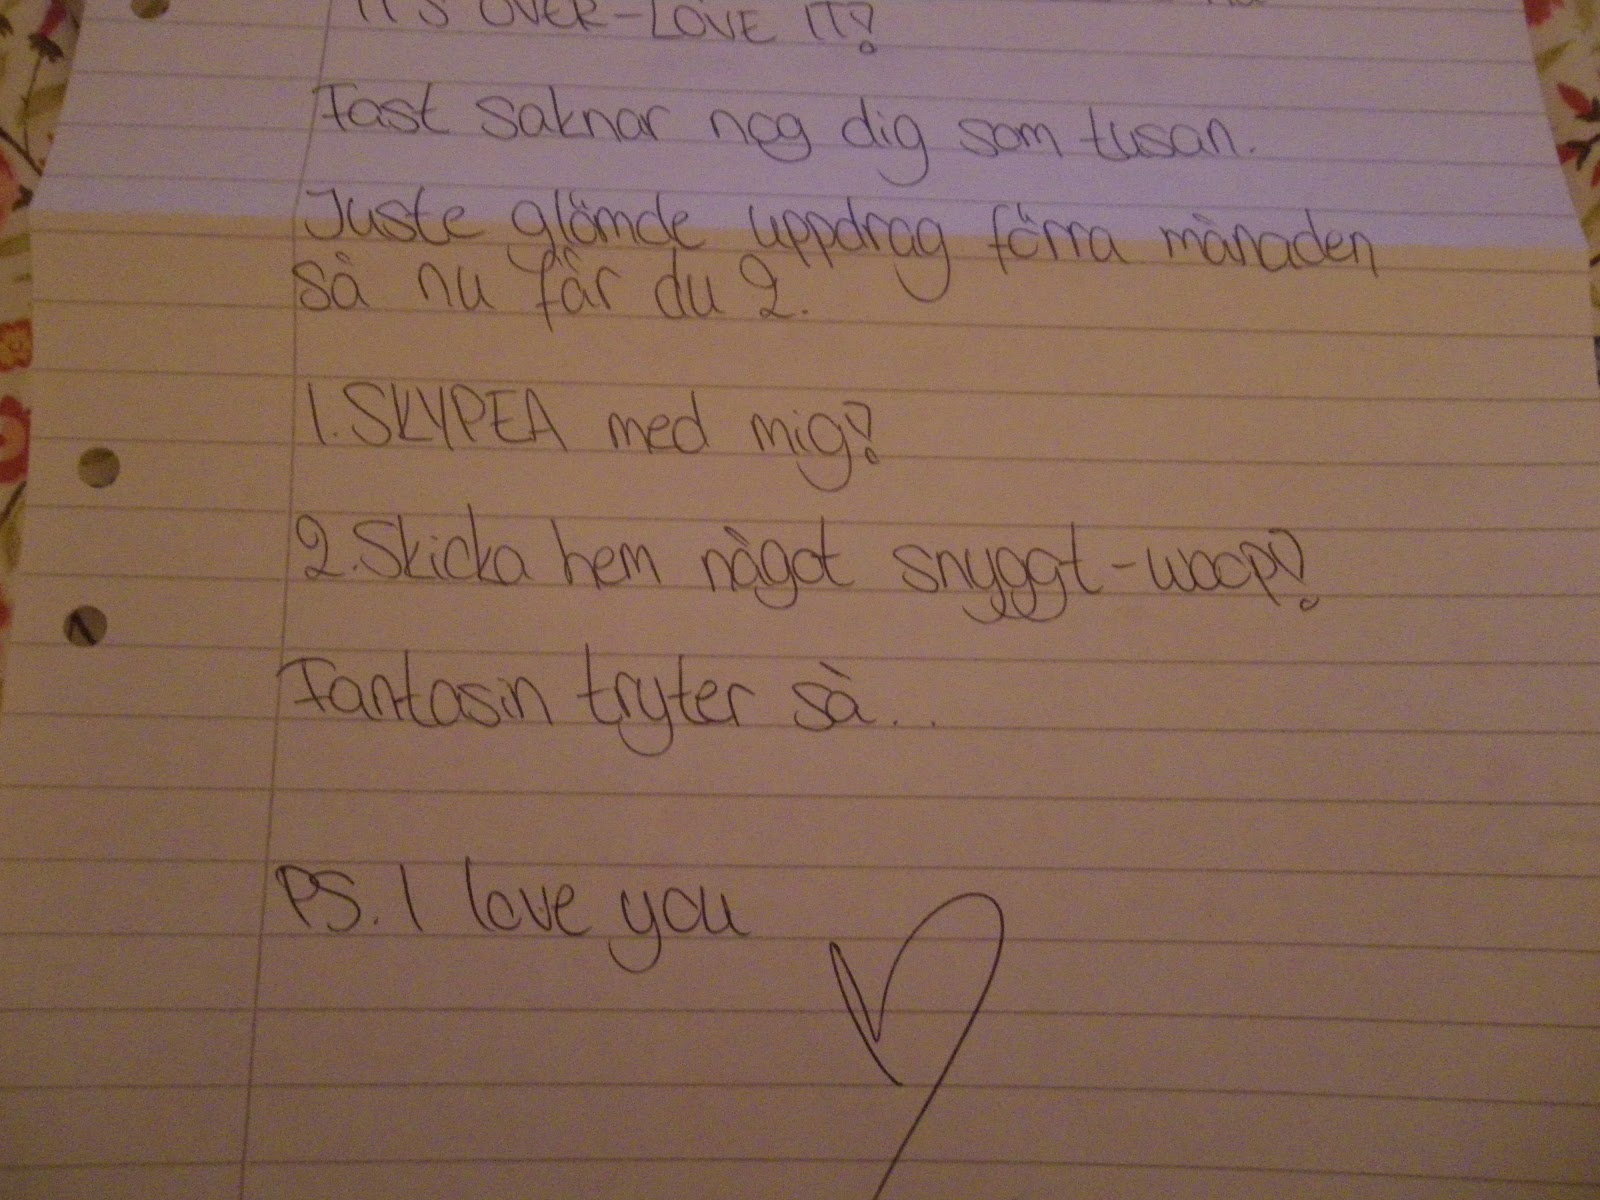 IT'S OVER-LOVE IT!
Fast saknar nog dig som tusan.
Juste glömde uppdrag förra månaden
så nu får du 2.
1. SKYPEA med mig!
2. Skicka hem något snyggt-woop!
Fantasin tryter så...
PS. I love you